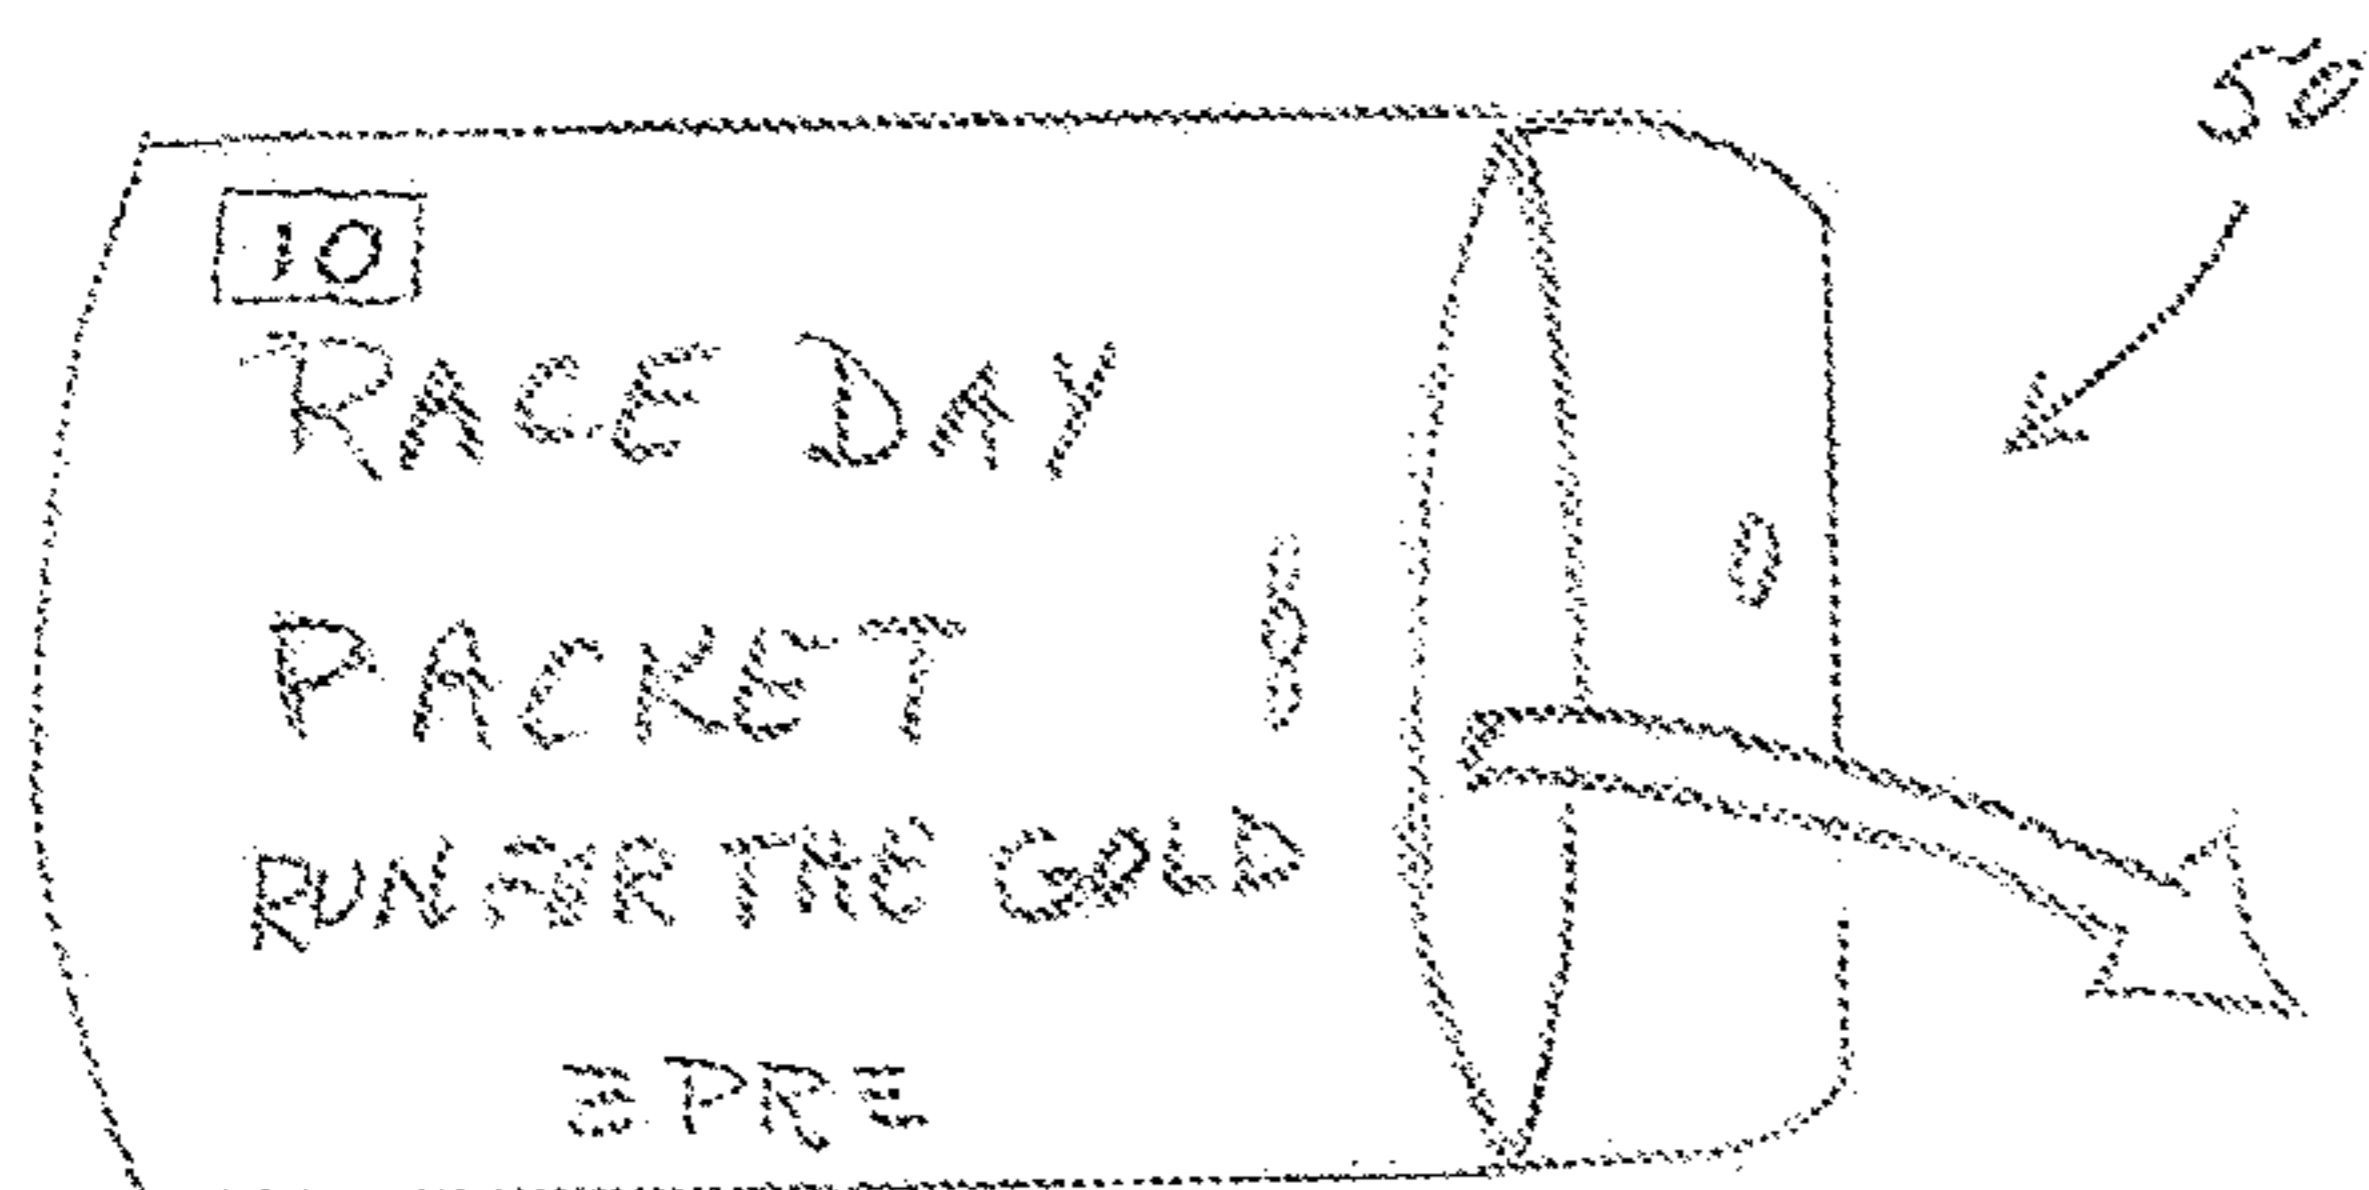 50
10
RACE DAY
PACKET
RUN FOR THE GOLD
3PRE